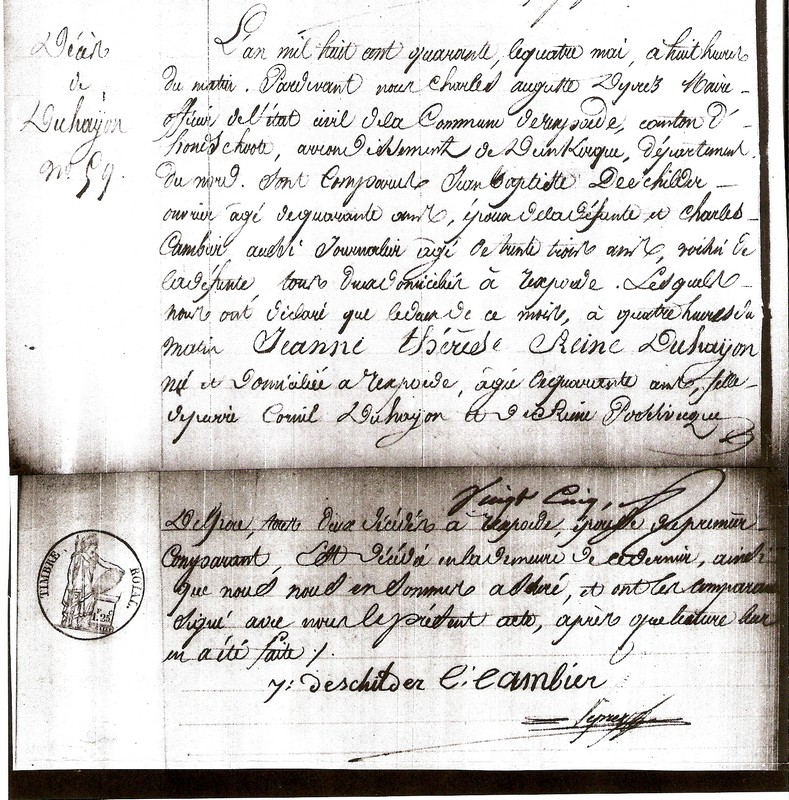 Décès
de
Duhayon
no 59.
L'an mil huit cent quarante, le quatre mai, à huit heures
du matin. Pardevant nous Charles auguste Maire
officier de l'état civil de la Commune de rexpoëde, canton d'
hondschoote, arrondissement de Dunkerque, département
du nord. Sont Comparus Jean baptiste Deschilder
ouvrier âgé de quarante ans, époux de la défunte et Charles
Cambier aussi Journalier âgé de trente trois ans, voisin de
la défunte tous deux domiciliés à rexpoede. Lesquels
nous ont déclaré que le deux de ce mois, à quatre heures du
matin Jeanne thérèse Reine Duhayon
né et domiciliée a rexpoede, âgée de quarante ans, fille
de pierre Cornil Duhayon et de Reine
Vingt Cinq.
tous deux décédés à rexpoede, épouse du premier
Comparant, Est décédé en la demeure de ce dernier, ainsi
que nous nous en sommes assuré, et ont les comparans
signé avec nous le présent acte, après que lecture leur
en a été faite /.
TIMBRE ROYAL
1.25
j: deschilder C: Cambier